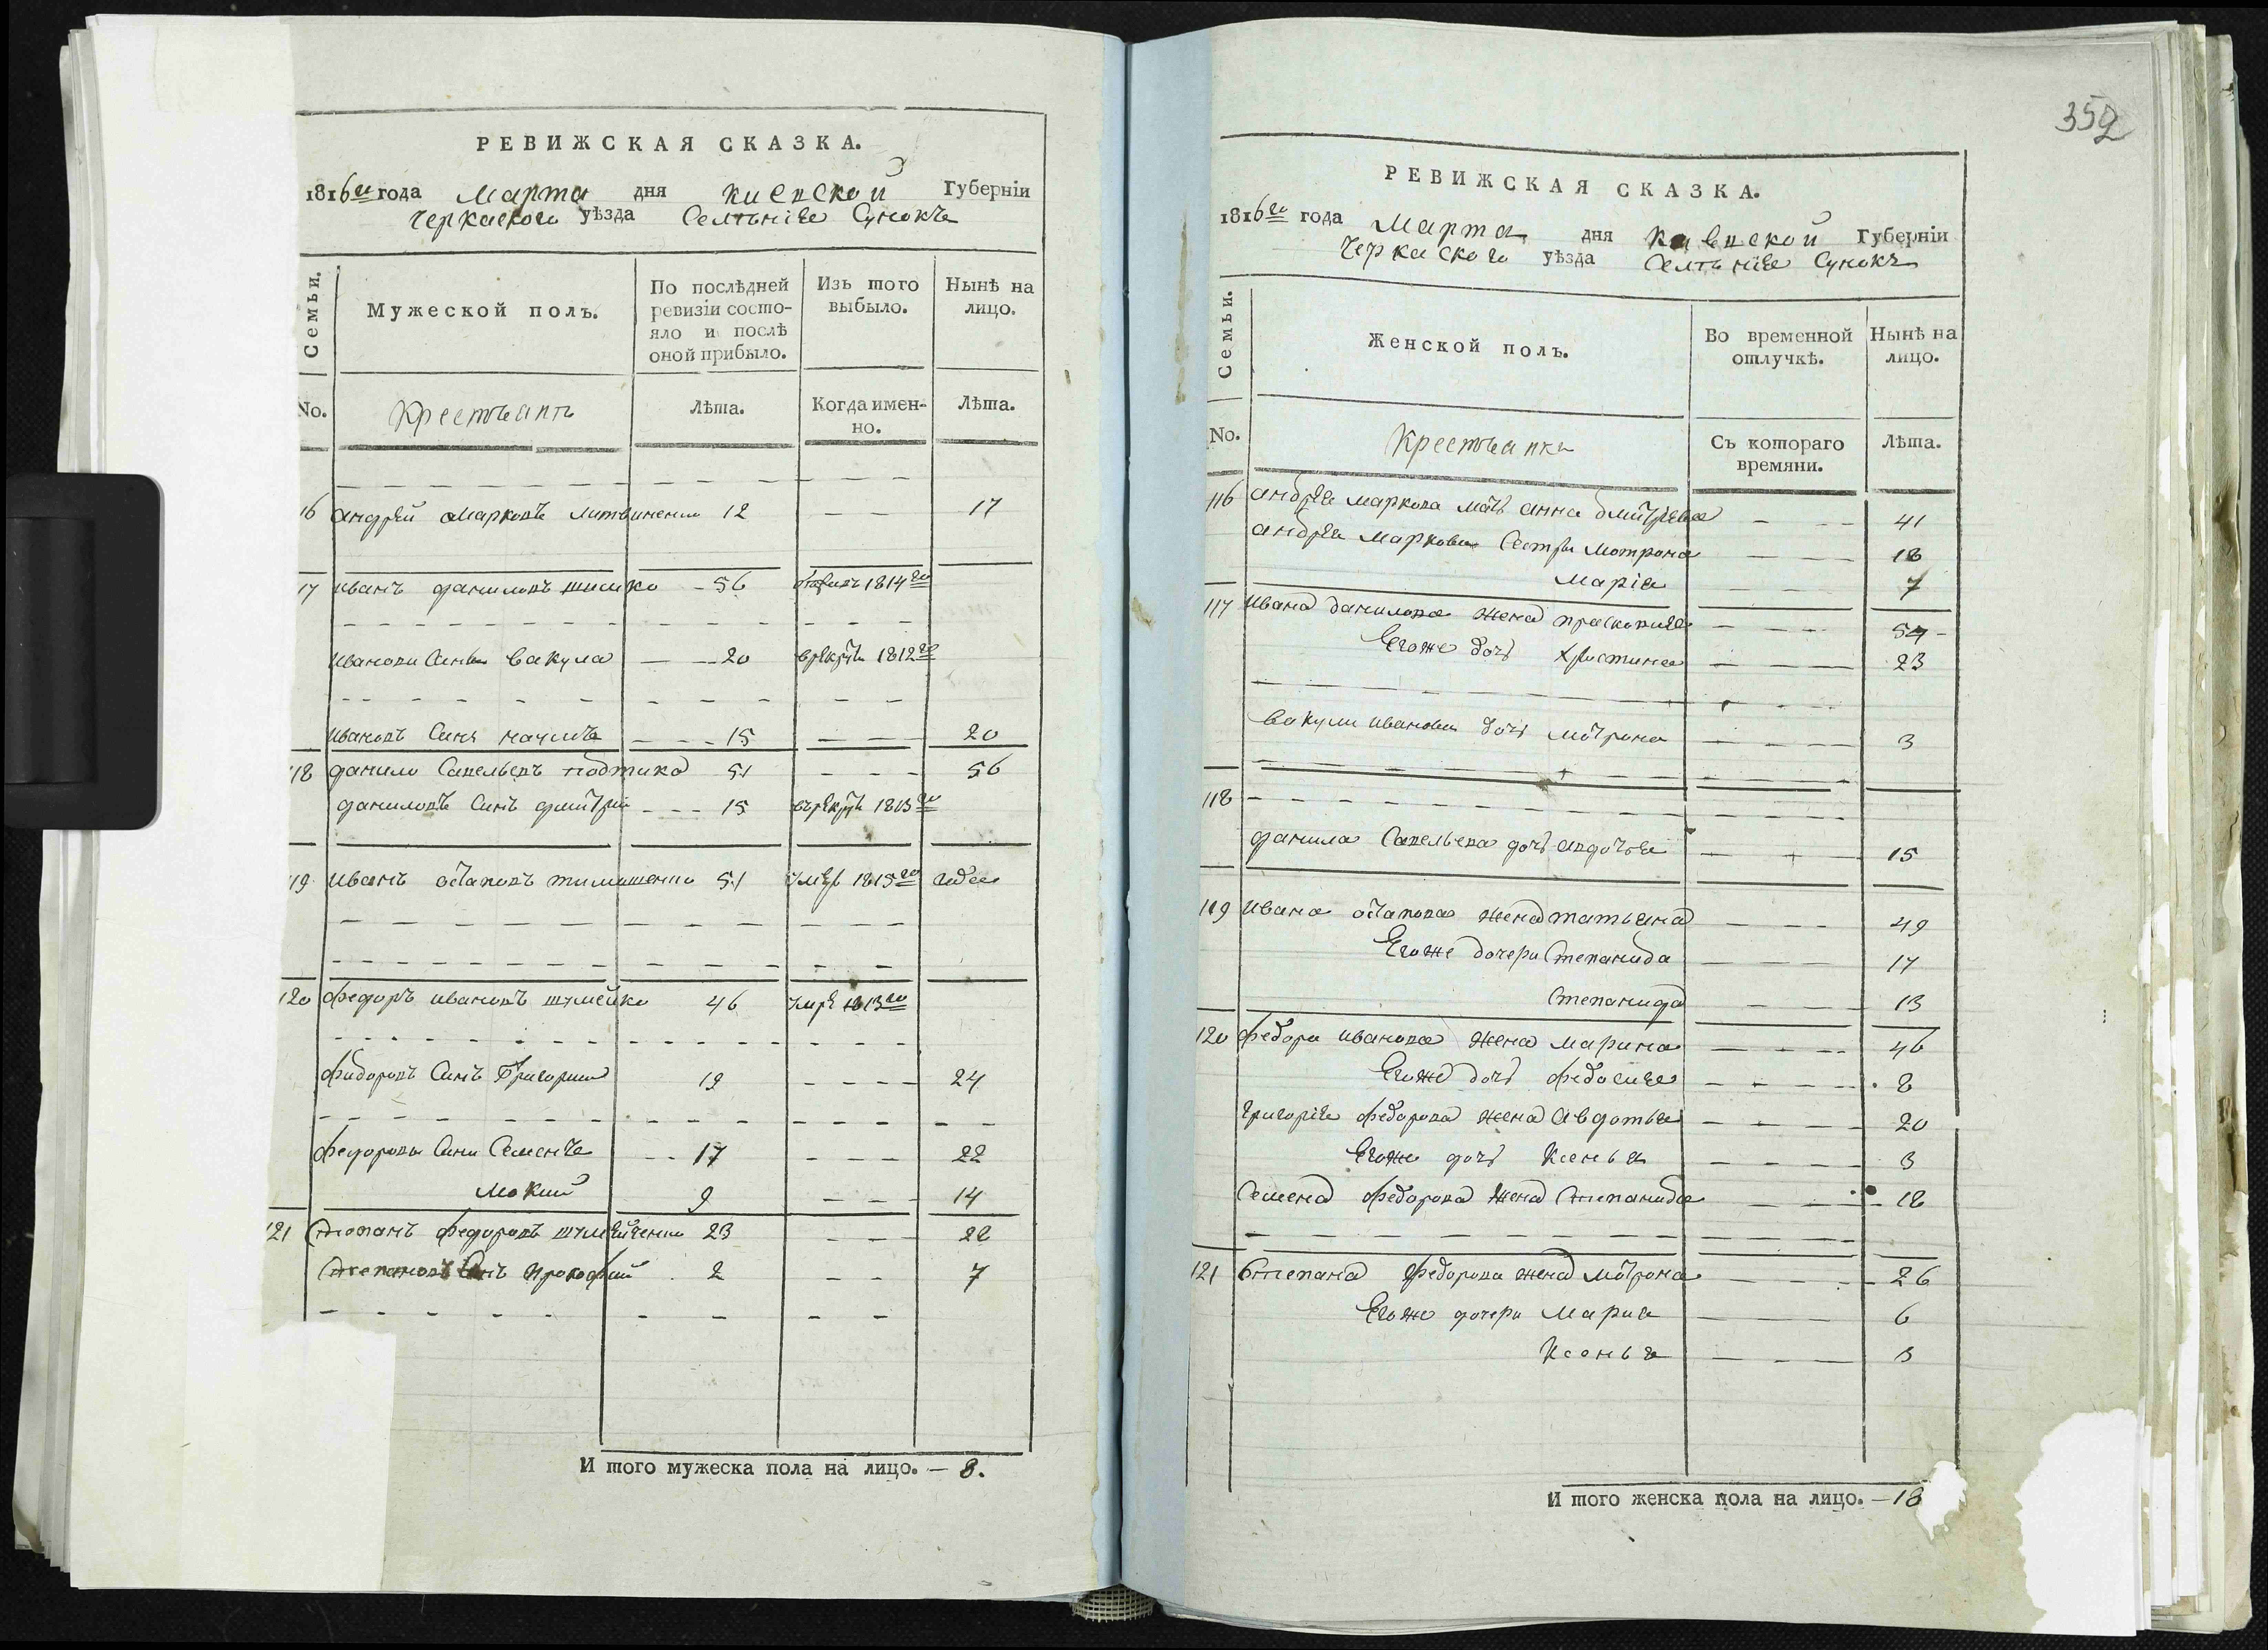 РЕВИЖСКАЯ СКАЗКА.
1816го года Марта дня Киевской Губерніи
Черкаского уѣзда Селѣніе Сунокъ
Семьи.
Мужеской полъ.
По послѣдней ревизіи состояло и послѣ оной прибыло.
Изъ того выбыло.
Нынѣ на лицо.
No.
Крестьянъ
Лѣта.
Когда именно.
Лѣта.
16 андрей Марковъ Литвиненко 12 17
17 иванъ даниловъ шишко 56 1814го
Ивановы Сины Вакула 20 врекруты 1812го
Ивановъ Синъ наумъ 15 20
118 данило Савельевъ подтико 51 56
даниловъ Синъ дмитрій 15 врекруты 1813го
119 иванъ остаповъ тимошенко 51 умеръ 1815го года
120 федоръ ивановъ шумейко 46 умре 1813го
Федоровъ Синъ Григорий 19 24
Федоровы Сины Семенъ 17 22
Мокий 9 14
121 Степанъ федоровъ шумейченко 23 28
Степановъ Синъ Прокофий 2 7
И того мужеска пола на лицо. — 8.
352
РЕВИЖСКАЯ СКАЗКА.
1816го года Марта дня Киевской Губерніи
Черкаского уѣзда Селѣніе Сунокъ
Семьи.
Женской полъ.
Во временной отлучкѣ.
Нынѣ на лицо.
No.
Крестьянки
Съ котораго времяни.
Лѣта.
116 андрея маркова мать анна дмитрева 41
андрея маркова Сестры мотрона 18
Марія 7
117 Ивана данилова жена прасковия 54
Егоже дочь христина 23
Вакули иванова дочь мотрона 3
118
данила Савельева дочь авдотя 15
119 Ивана остапова жена татьяна 49
Егоже дочери Степанида 17
Степанида 13
120 федора иванова жена марина 46
Егоже дочь федосия 8
григорія федорова жена Авдотья 20
Егоже дочь Ксенья 3
Семена федорова жена Степанида 18
121 Степана федорова жена мотрона 26
Егоже дочери Мария 6
Ксенья 3
И того женска пола на лицо. — 18